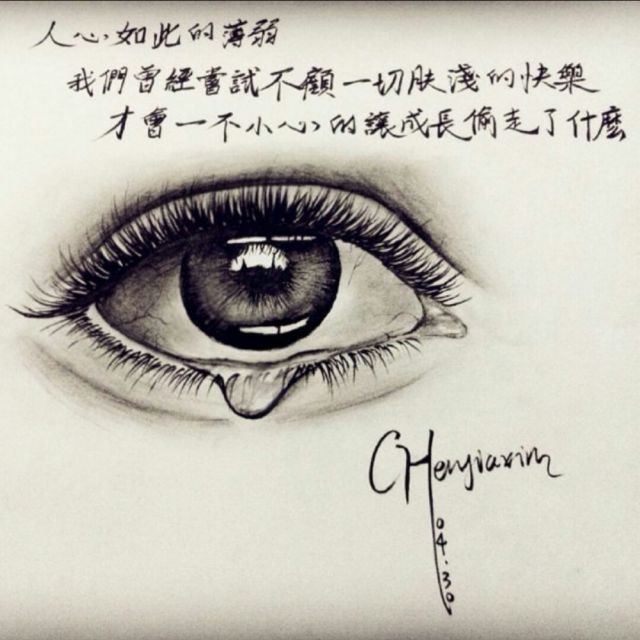 人心如此的薄弱
我們曾經嘗試不顧一切膚淺的快樂
才會一不小心的讓成長偷走了什麼
CHenjiaxin
04.30.